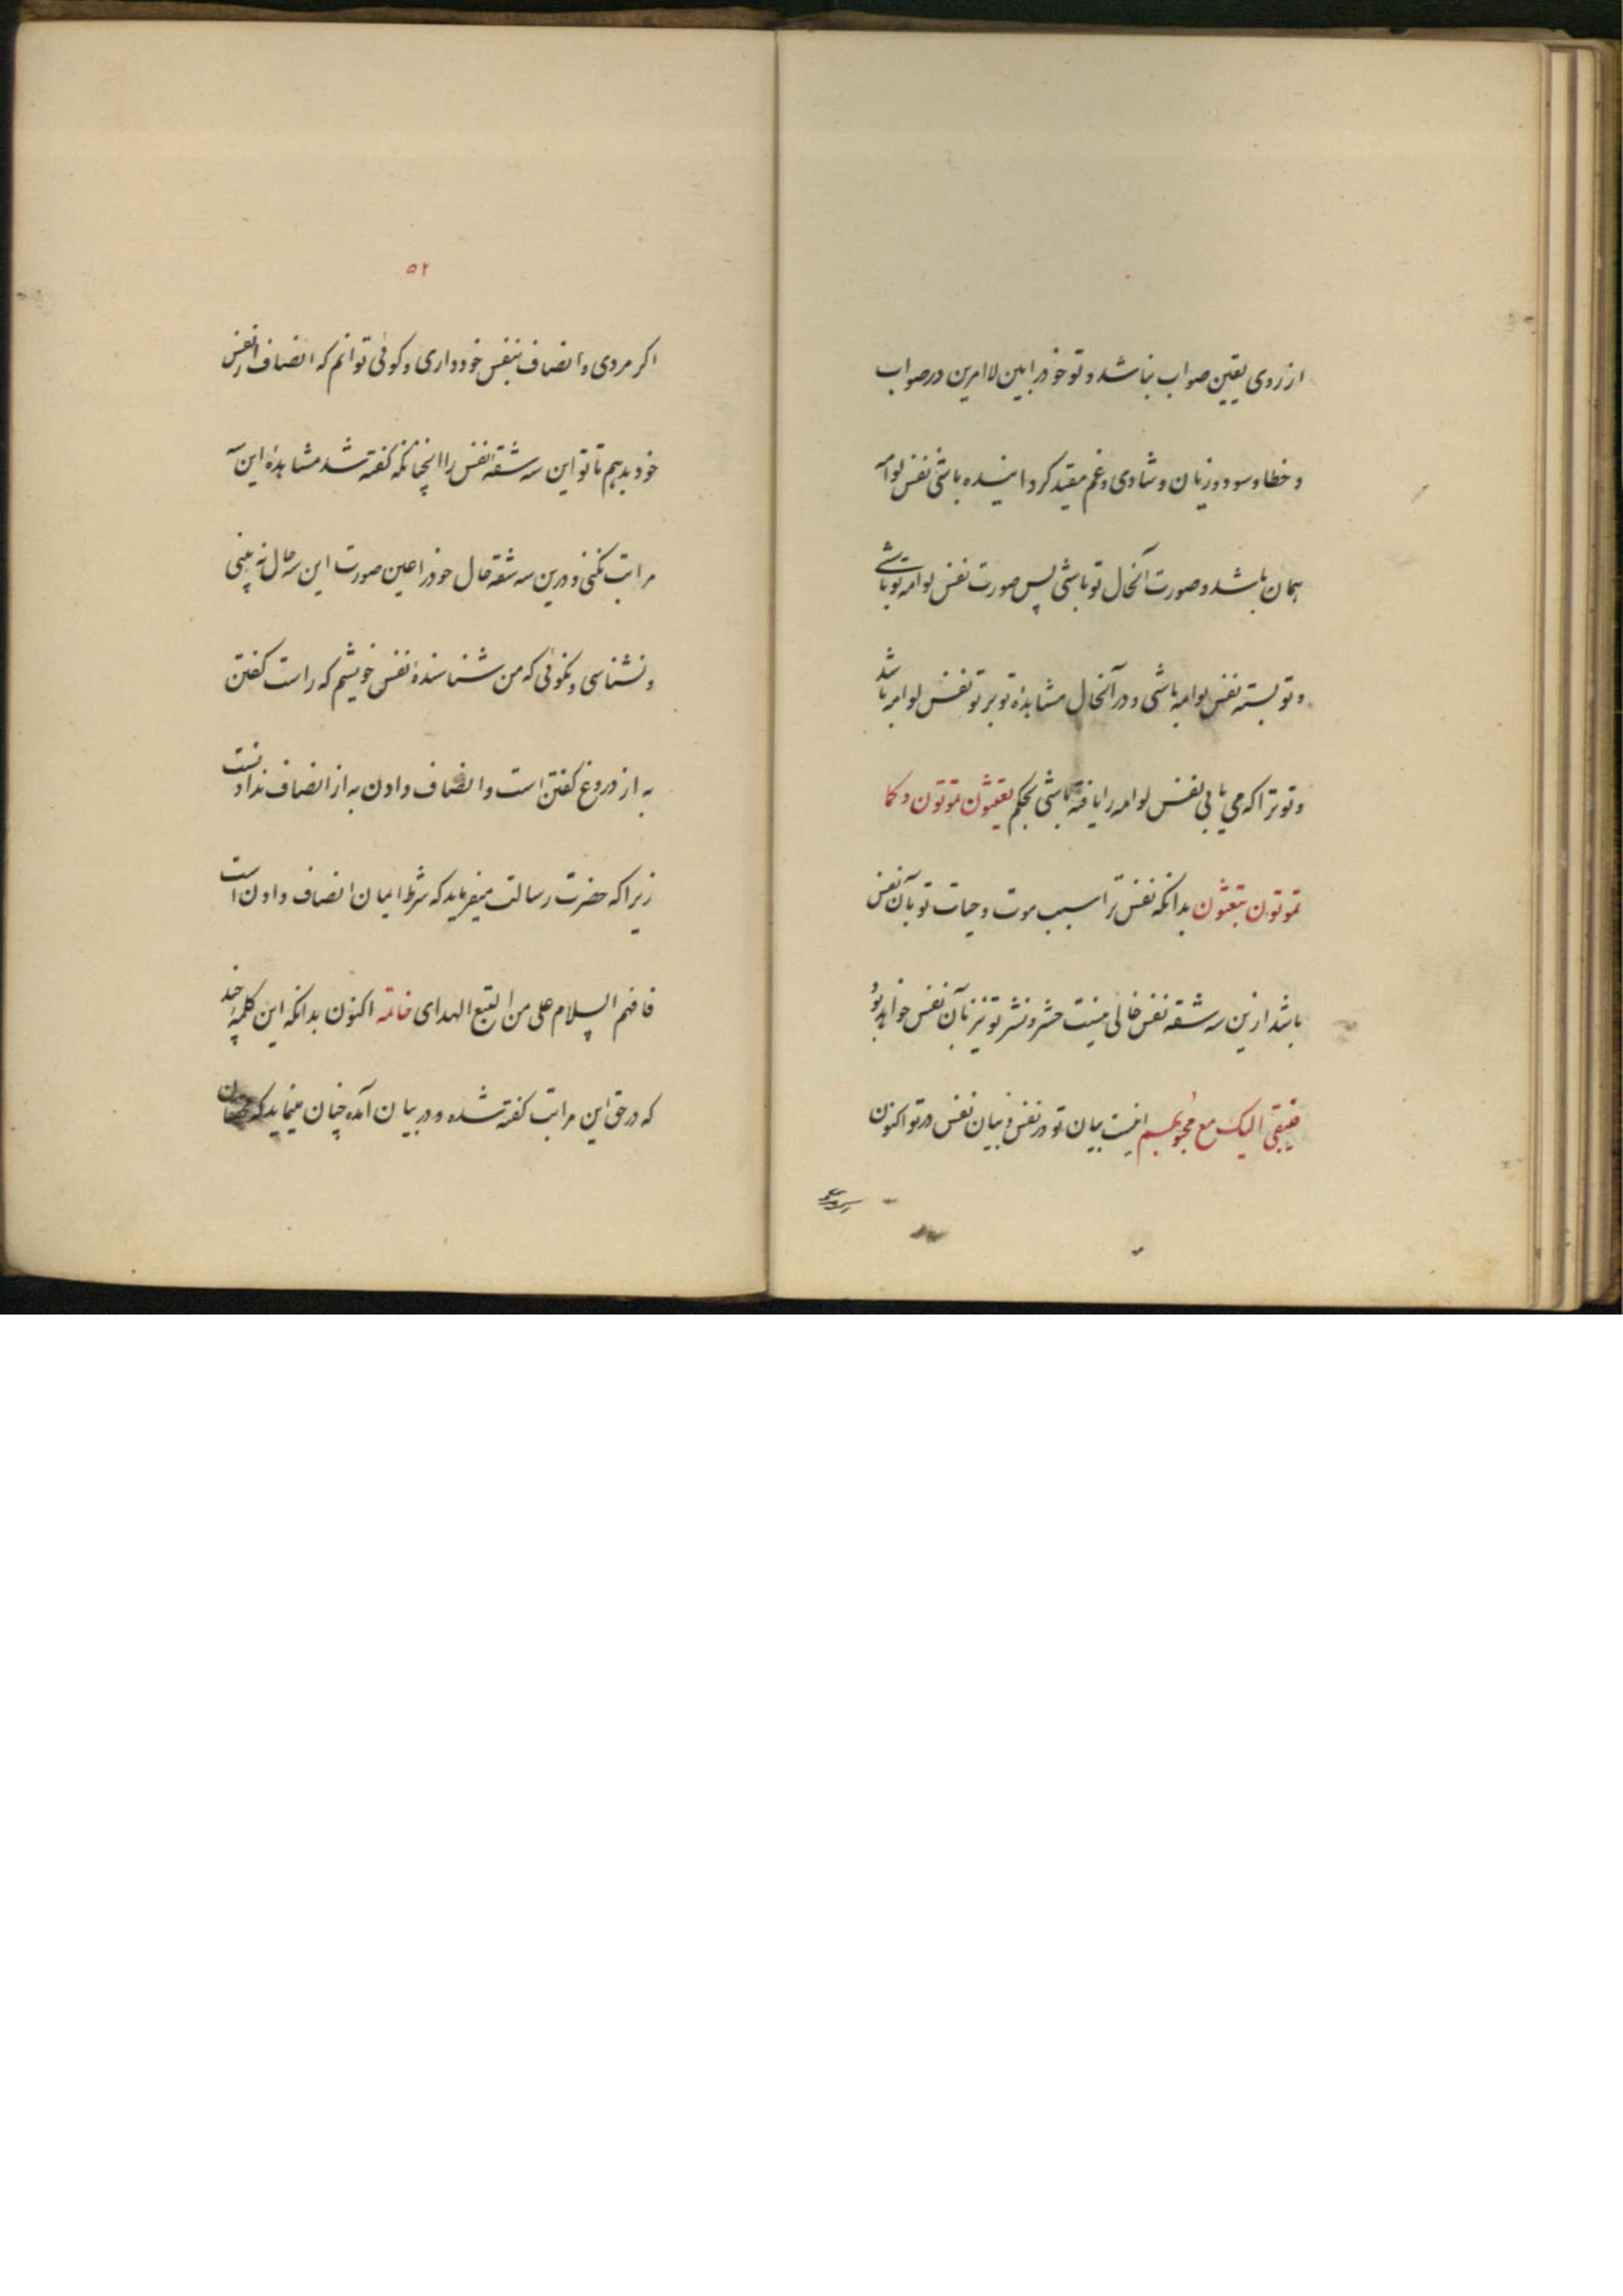 از روی یقین صواب نباشد و تو خود را بین لامرین در صواب
و خطا و سود و زیان و شادی و غم مقید کردانیده باشی نفس لوامه
همان باشد و صورت آنحال تو باشی پس صورت نفس لوامه تو باشی
و تو بسته نفس لوامه باشی و در آنحال مشاهدهٔ تو بر تو نفس لوامه باشد
و تو ترا که می یابی نفس لوامه را یافته باشی بحکم تعیثون تموتون و کما
تموتون تبعثون بدانکه نفس ترا سبب موت و حیات تو بآن نفس
باشد ازین سه شقه نفس خالی نیست حشر و نشر تو نیز بآن نفس خواهد بود
الیک مع اینست بیان تو در نفس و بیان نفس در تو اکنون
۵۲
اکر مردی و انصاف بنفس خود داری و کوئی توانم که انصاف از نفس
خود بدهم تا تو این سه شقه نفس را آنچنانکه کفته شد مشاهدهٔ این سه
مراتب نکنی و درین سه شقه حال خود را عین صورت این سه حال نه بینی
و نشناسی و نکوئی که من شناسندهٔ نفس خویشم که راست کفتن
به از دروغ کفتن است و انصاف دادن به از انصاف نداد نست
زیرا که حضرت رسالت میفرماید که شرط ایمان انصاف دادن است
فافهم السلام علی من التبع الهدای خاتمه اکنون بدانکه این کلمهٔ چند
که در حق این مراتب کفته شده و در بیان آمده چنان مینماید که